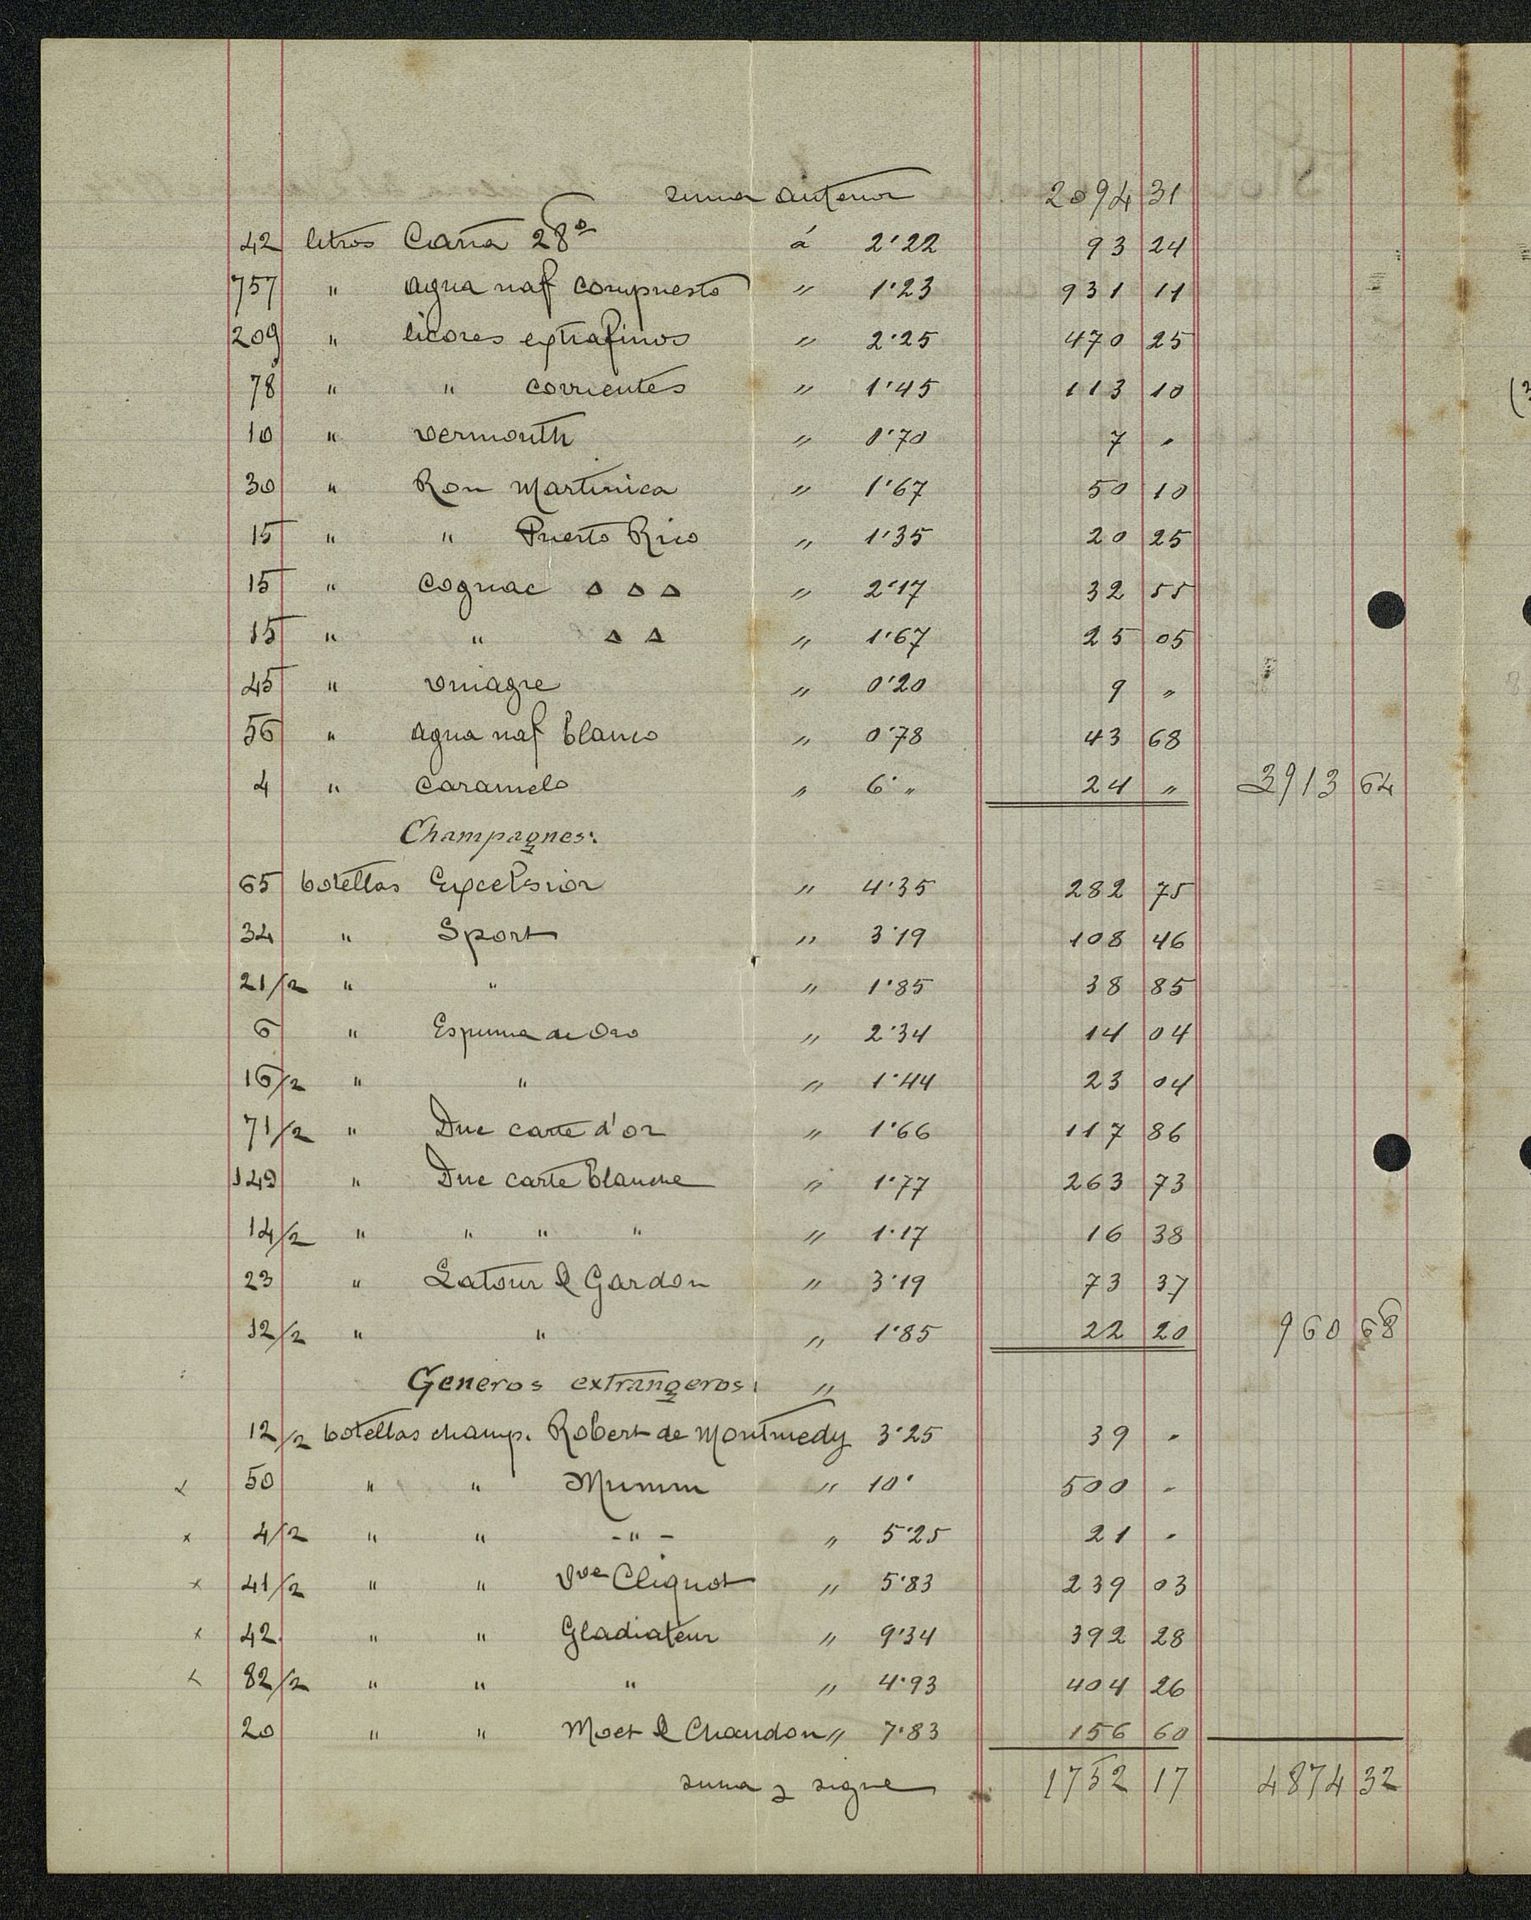 suma anterior 2094 31
42 litros Caña 28º á 2'22 93 24
757 " agua naf compuesto " 1'23 931 11
209 " licores extrafinos " 2'25 470 25
78 " " corrientes " 1'45 113 10
10 " vermouth " 0'70 7 "
30 " Ron Martinica " 1'67 50 10
15 " " Puerto Rico " 1'35 20 25
15 " Cognac △ △ △ " 2'17 32 55
15 " " △ △ " 1'67 25 05
45 " vinagre " 0'20 9 "
56 " agua naf blanco " 0'78 43 68
4 " caramelo " 6' " 24 " 3913 64
Champagnes:
65 botellas Excelsior " 4'35 282 75
34 " Sport " 3'19 108 46
21/2 " " " 1'85 38 85
6 " Espuma de Oro " 2'34 14 04
16/2 " " " 1'44 23 04
71/2 " Duc carte d'or " 1'66 117 86
149 " Duc carte blanche " 1'77 263 73
14/2 " " " " " 1'17 16 38
23 " Latour & Gardon " 3'19 73 37
12/2 " " " 1'85 22 20 960 68
Generos extrangeros: "
12/2 botellas champ. Robert de Montmedy 3'25 39 "
x 50 " " Mumm " 10' 500 "
x 4/2 " " -"- " 5'25 21 "
x 41/2 " " Vve Cliquot " 5'83 239 03
x 42 " " Gladiateur " 9'34 392 28
x 82/2 " " " " 4'93 404 26
20 " " Moet & Chandon " 7'83 156 60
suma y sigue 1752 17 4874 32